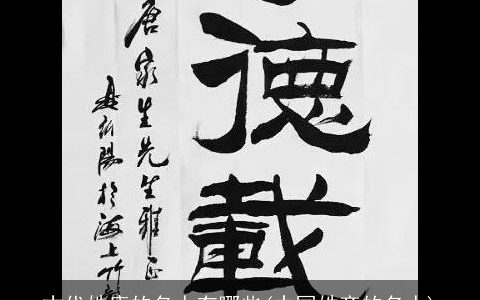 德載
唐家生先生雅正
陽於海上竹
古代姓唐的名人有哪些(中国姓唐的名人)